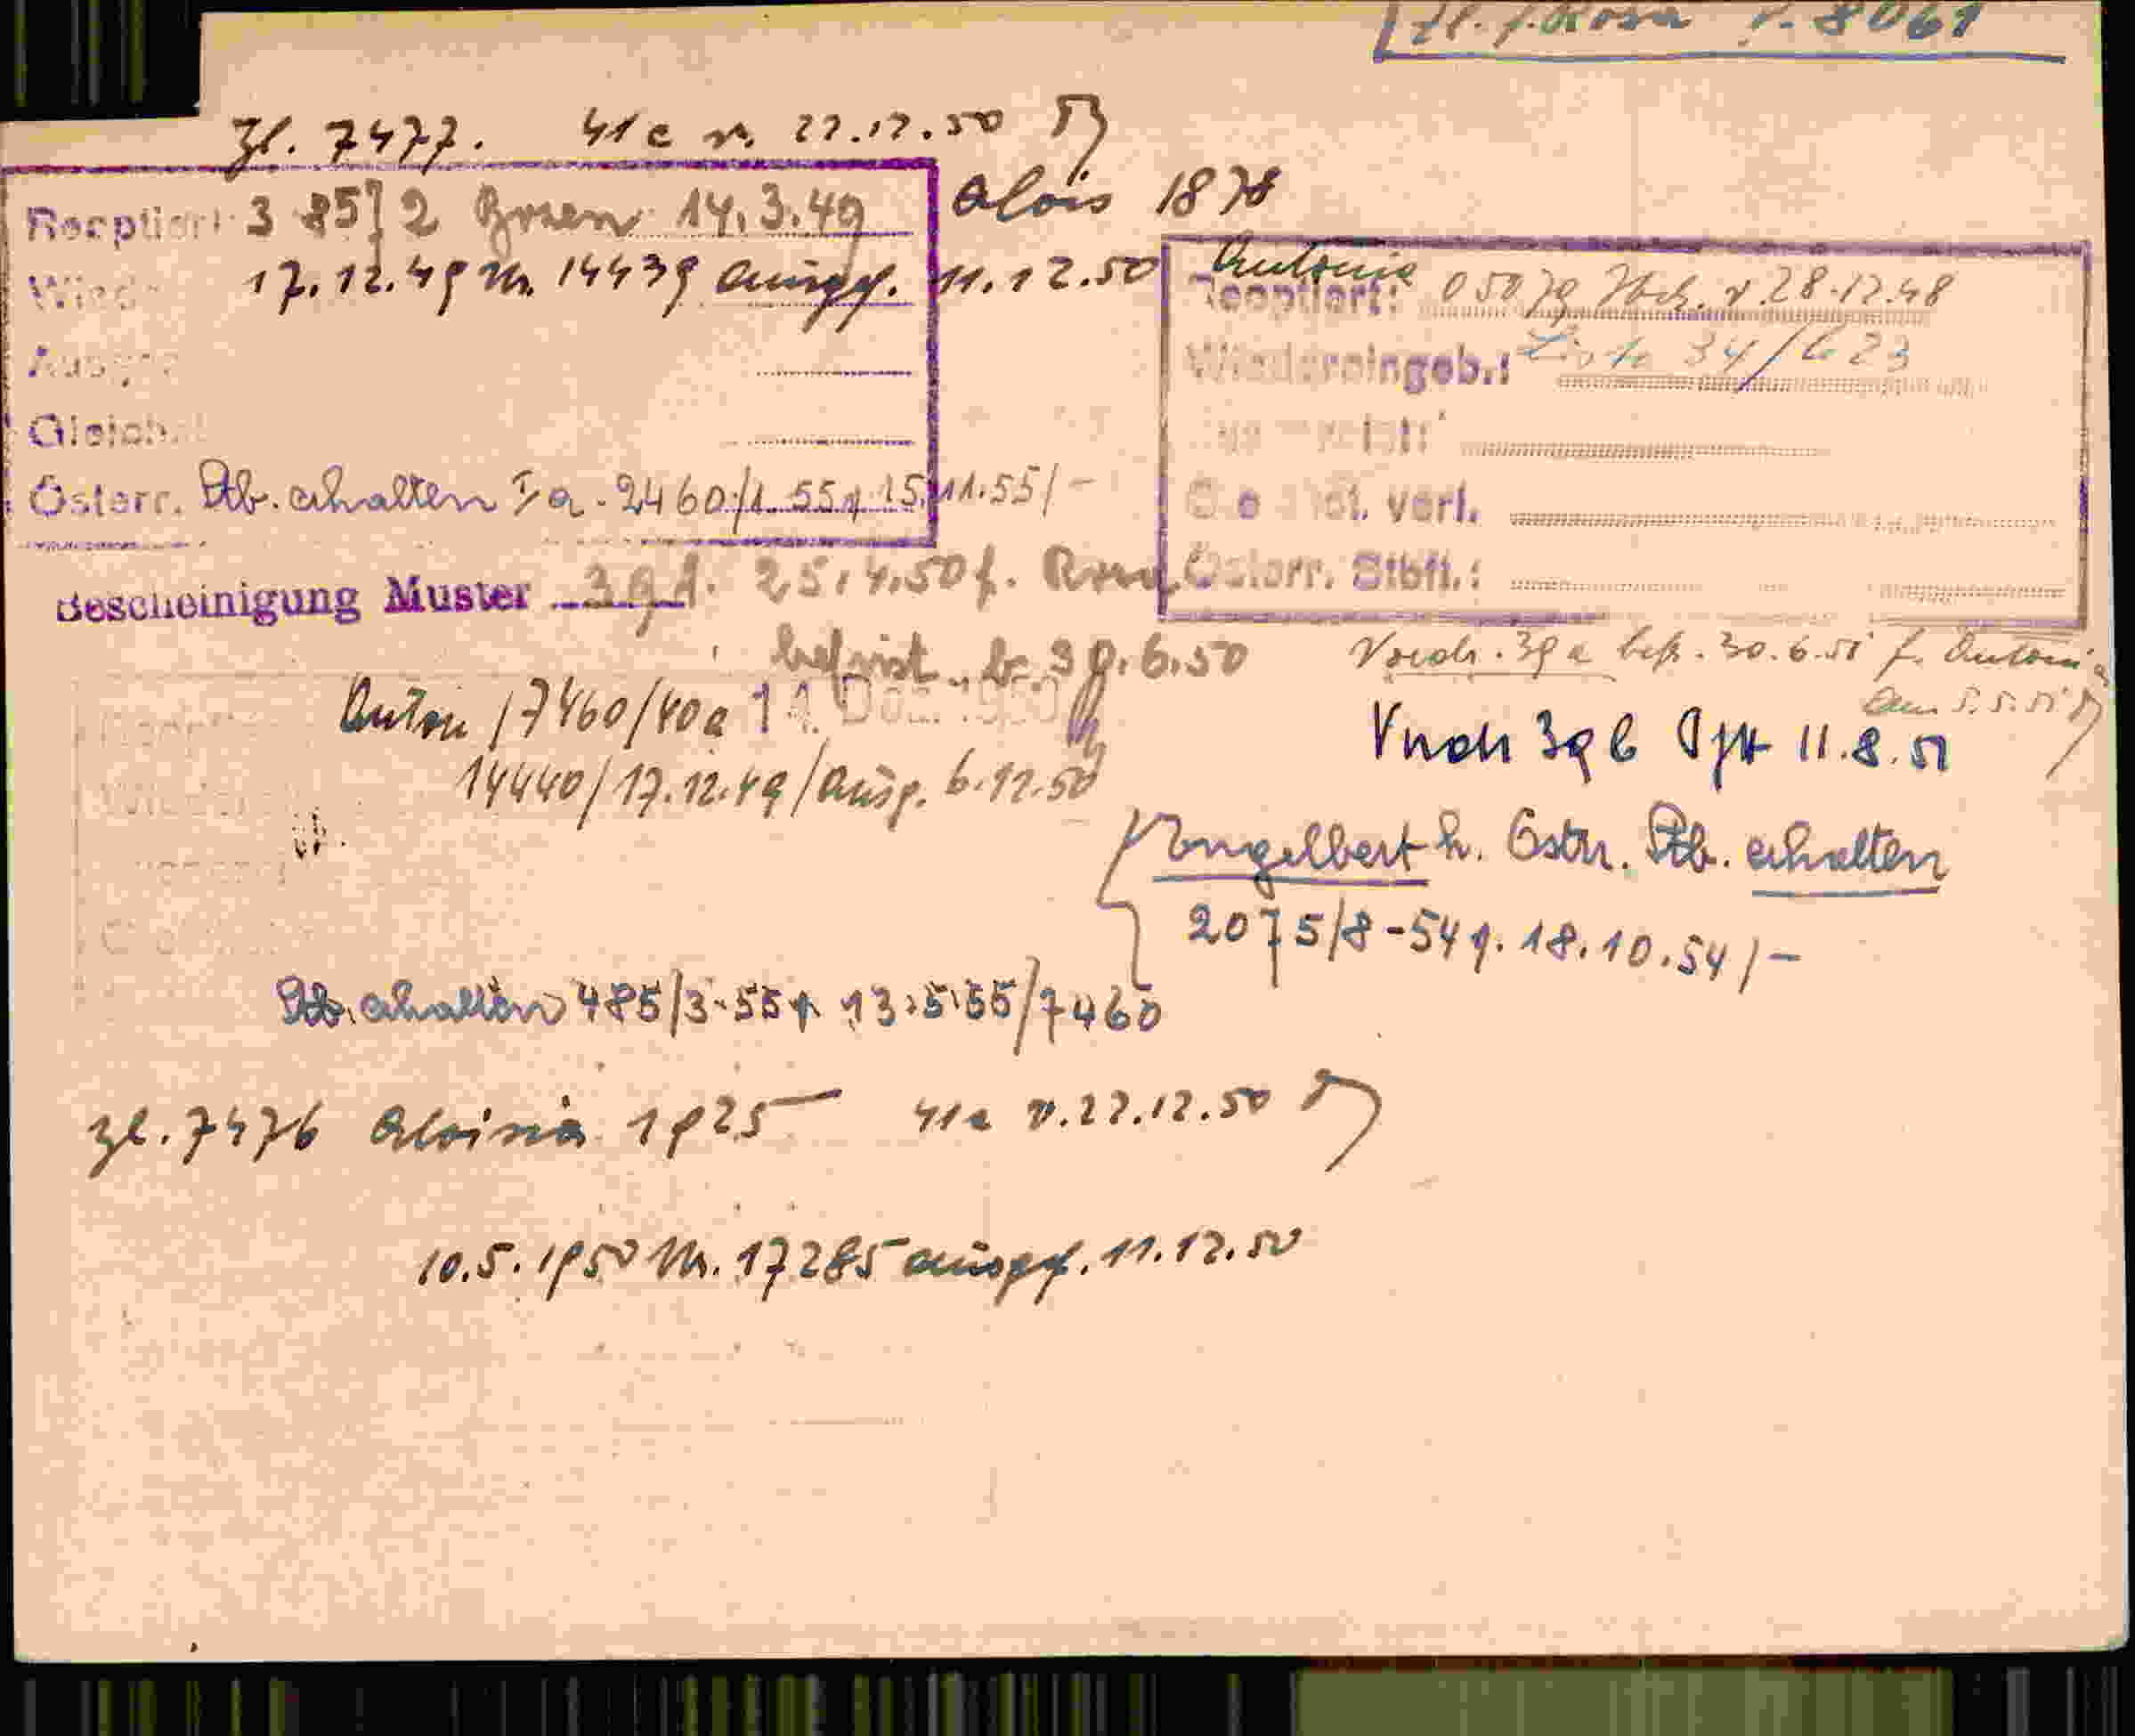 Zl. f. Rosa v. 8061
Zl. 7477. 41 a v. 22.12.50
Reoptiert: 3 8572 Bozen 14.3.49 Alois 1878
Wied 17.12.49 Nr. 14439 ausgef. 11.12.50
Gleich.
Österr. Stb. erhalten I a - 2460/1 55 v 15.11.55/-
Antonia
Reoptiert: 05079 v. 28.12.48
Wiedereingeb.: Liste 34/623
verl.
Österr. Stbft.:
Bescheinigung Muster 39 d. 25.4.50 f. Rosa
befrist. b. 30.6.50
Vordr. 39 a befr. 30.6.51 f. Antonia
am 5.5.51
Anton /7460/40a 11. Dez. 1950
Vordr 39 b 11.8.51
14440/17.12.49/Ausg. 6.12.50
Engelbert h. Östr. Stb. erhalten
2075/8-54 v. 18.10.54/-
Stb. erhalten 485/3-55 v 13.5.55/7460
Zl. 7476 Aloisia 1925 41a v. 22.12.50
10.5.1950 Nr. 17285 ausgef. 11.12.50